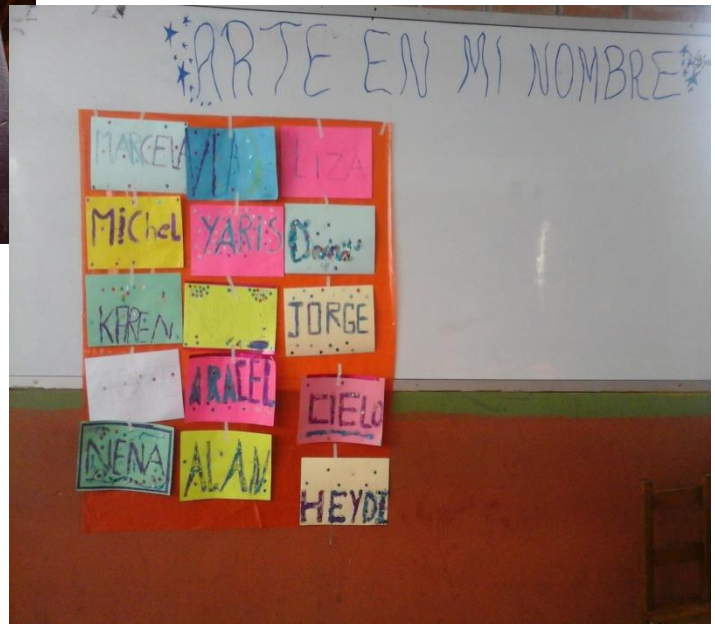 ARTE EN MI NOMBRE
MARCELA
LIZA
MiChel
YARIS
KAREN
JORGE
ARACEL
CIELO
NENA
ALAN
HEYDI